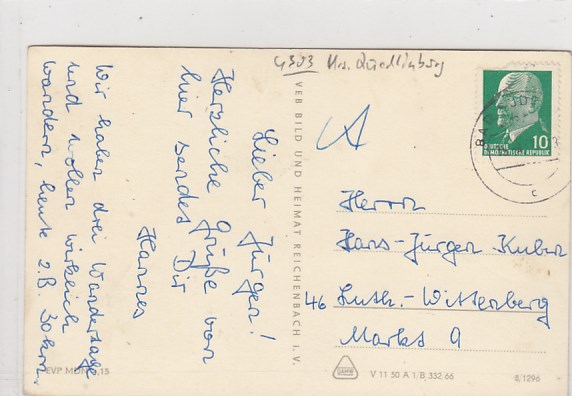 4303 Krs. Quedlinburg
Lieber Jürgen!
Herzliche Grüße von
hier sendet Dir
Hannes
Wir haben drei Wandertage
und wollen wirklich
wandern, heute z.B. 30 km.
VEB BILD UND HEIMAT REICHENBACH I. V.
A
DEUTSCHE
DEMOKRATISCHE REPUBLIK
10
BAD
c
Herrn
Hans-Jürgen Kuber
46 Luth.-Wittenberg
Markt 9
EVP MDN 0,15
V 11 50 A 1/B 332 66
8/1296